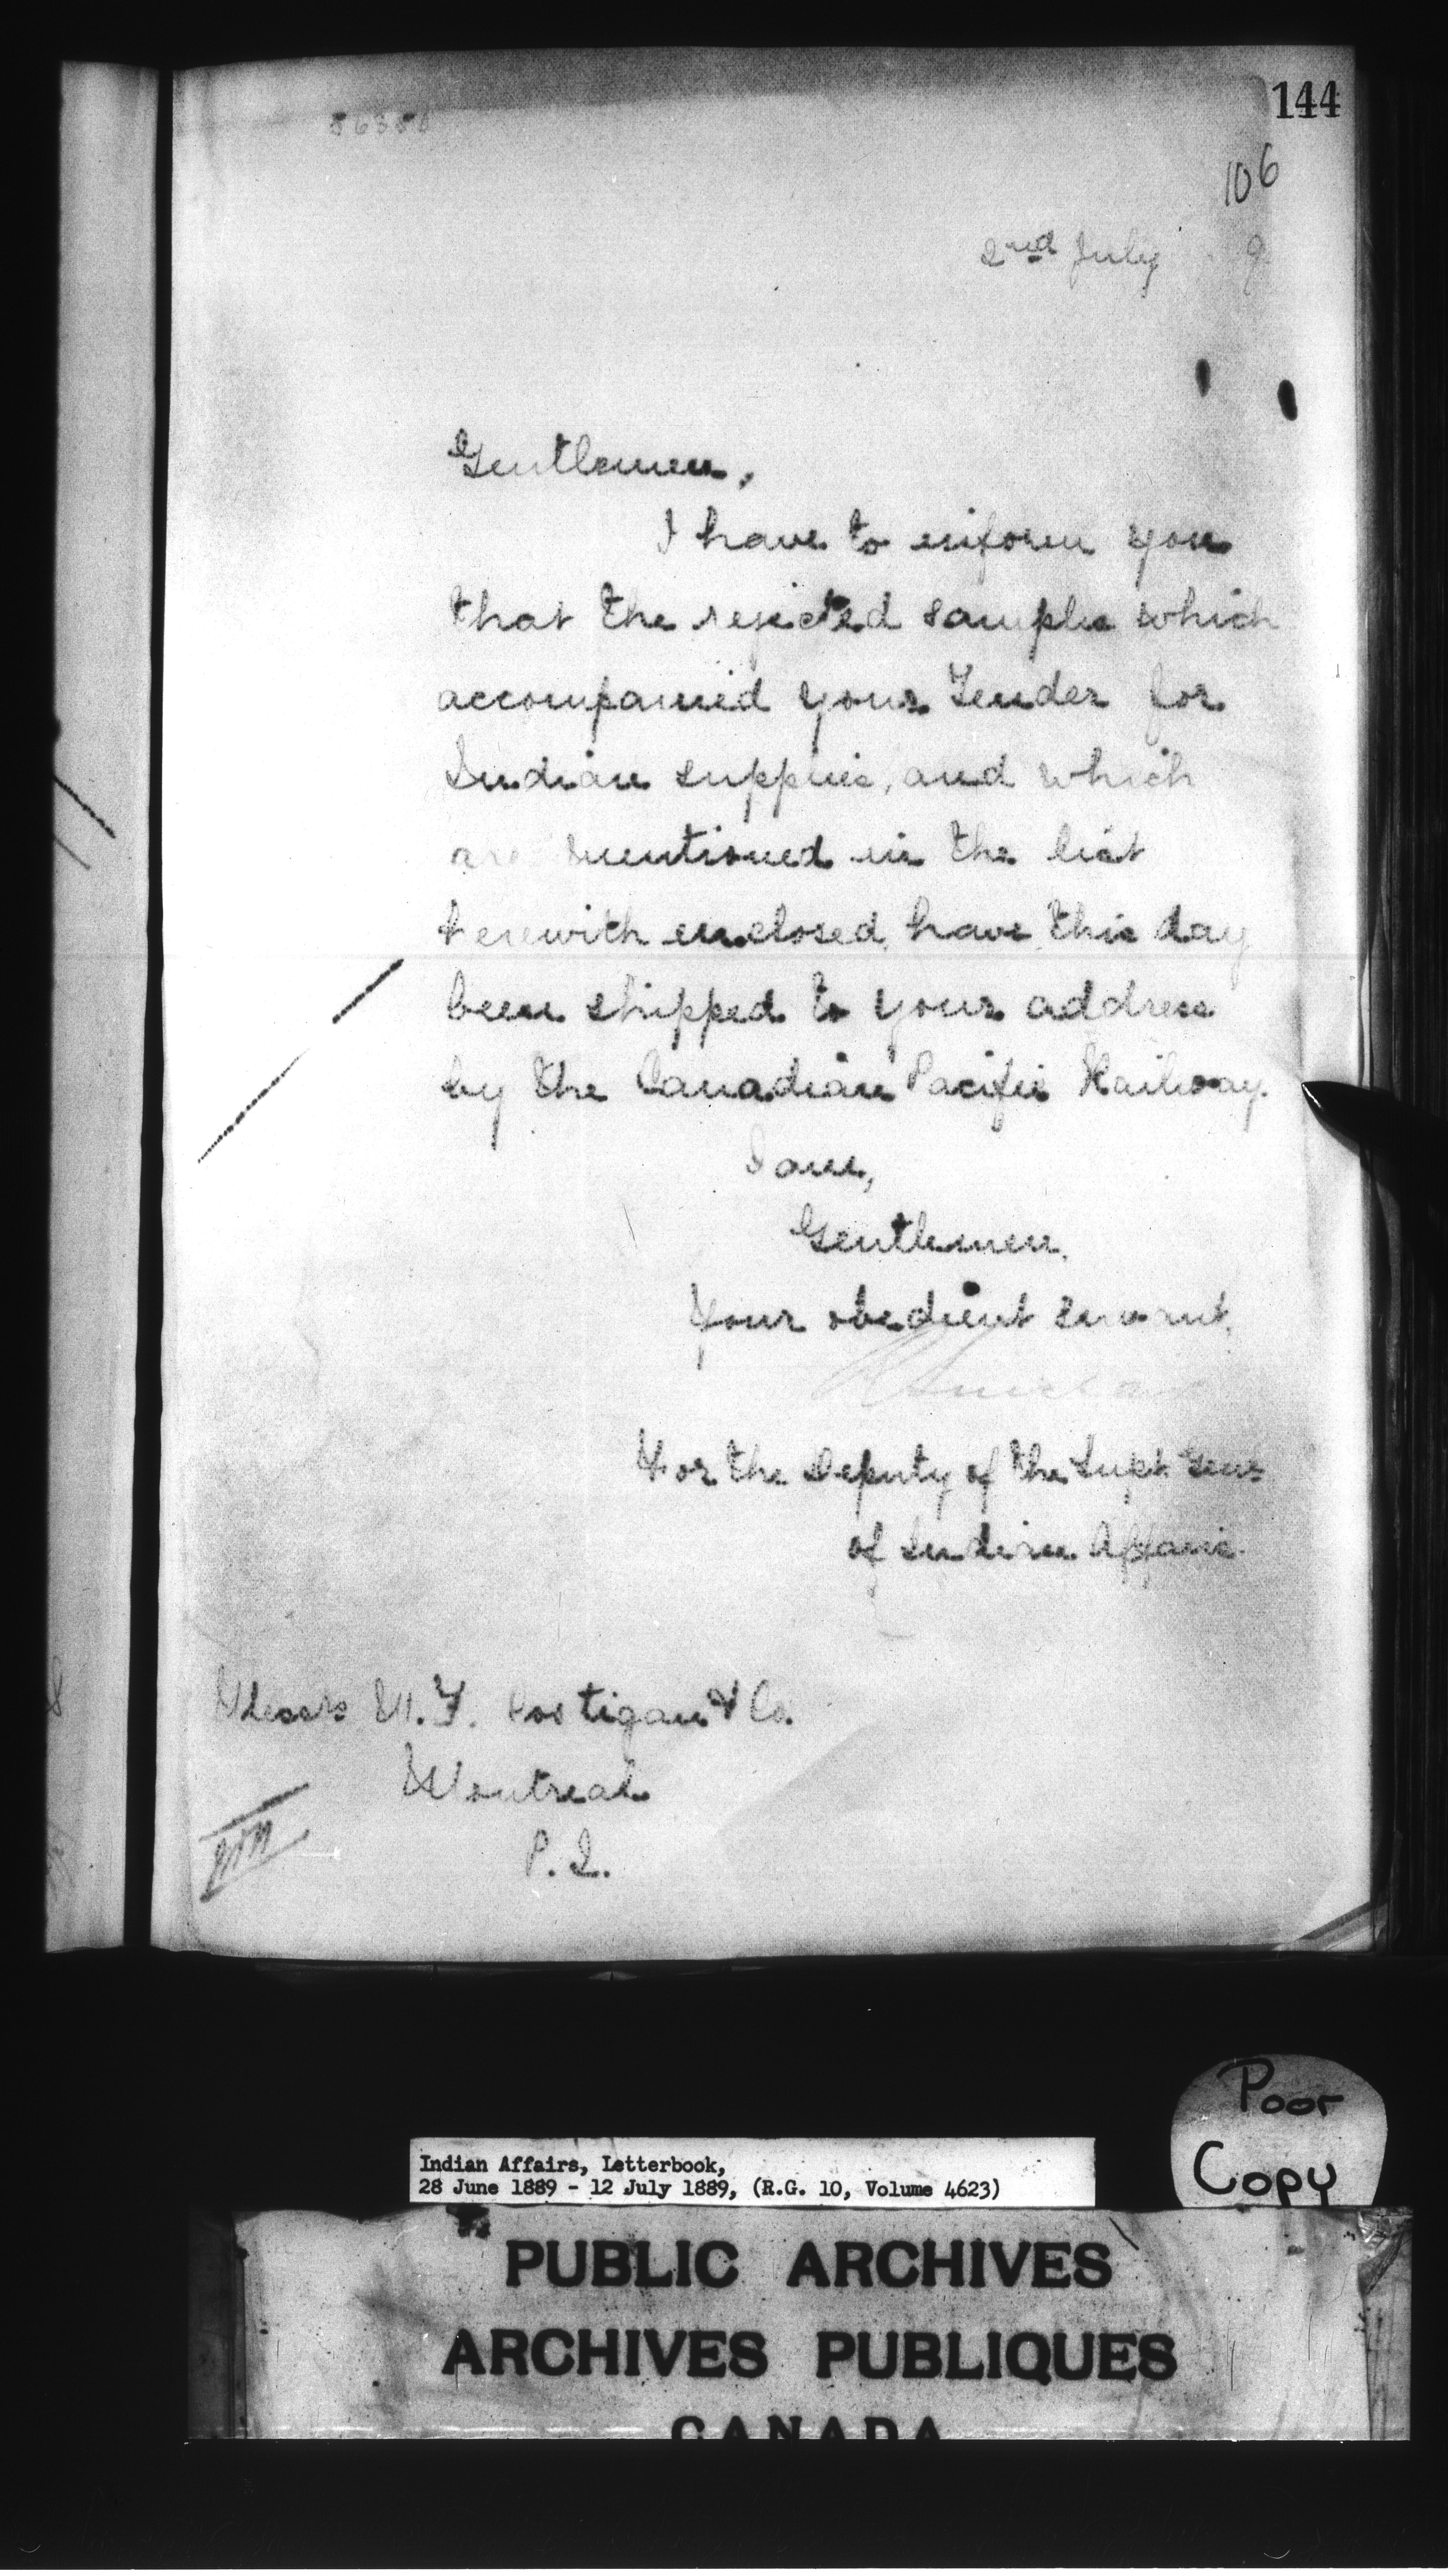 144
106
2nd July 9
Gentlemen,
I have to inform you
that the rejected samples which
accompanied your Tender for
Indian supplies, and which
are mentioned in the list
herewith enclosed, have this day
been shipped to your address
by the Canadian Pacific Railway.
I am,
Gentlemen,
Your obedient servant,
For the Deputy of the Supt. Genl
of Indian Affairs.
Messrs M.F. Costigan & Co.
Montreal
P.Q.
Poor
Copy
Indian Affairs, Letterbook,
28 June 1889 - 12 July 1889, (R.G. 10, Volume 4623)
PUBLIC ARCHIVES
ARCHIVES PUBLIQUES
CANADA